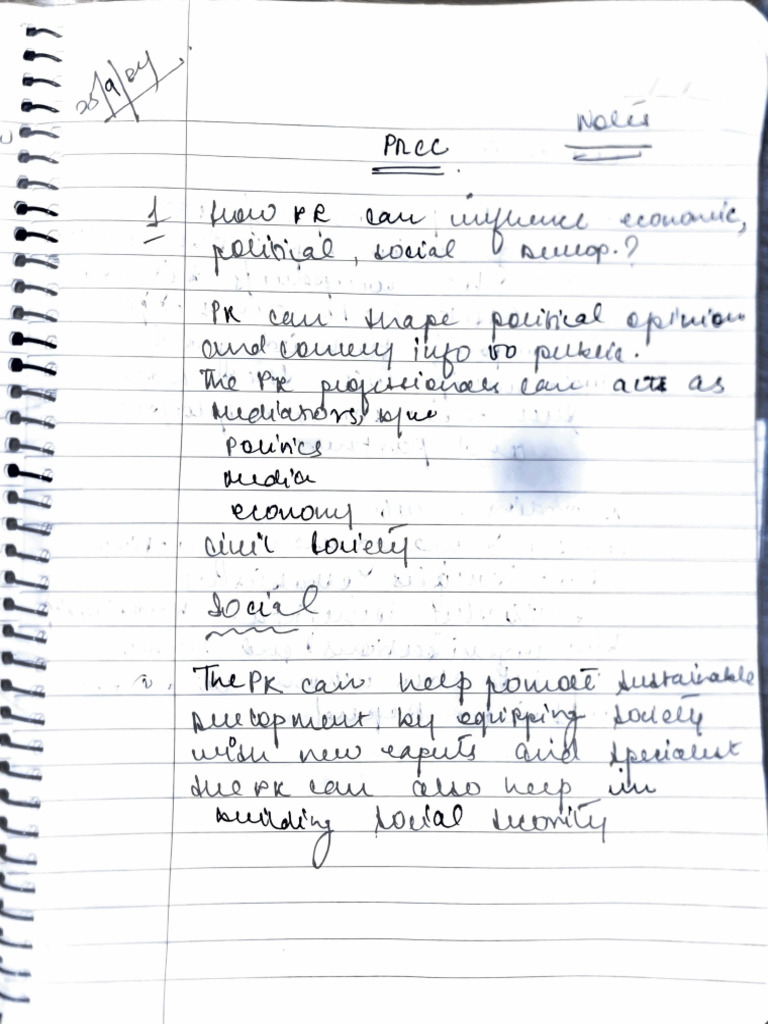 25/9/24
Notes
PRCC
1 How PR can influence economic,
political, social develop.?
PR can shape political opinion
and convey info to public.
The PR professionals can acts as
mediators, b/w
Politics
media
economy
civil society
Social
i. The PR can help pomote sustainable
development by equipping society
with new experts and specialist
the PR can also help in
building social security